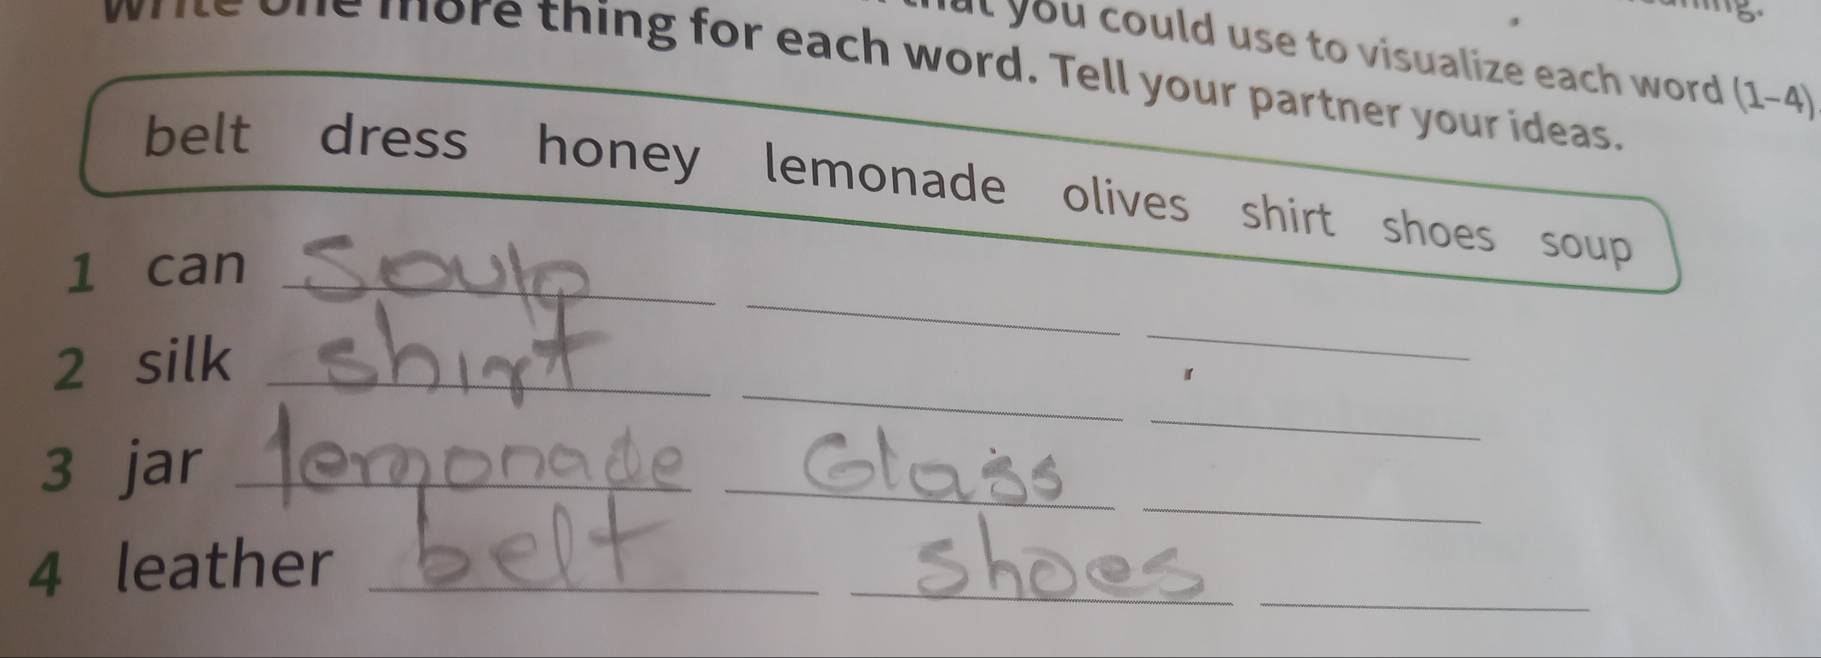 write one more thing for each word. Tell your partner your ideas.
you could use to visualize each word (1–4).
belt dress honey lemonade olives shirt shoes soup
1 can soup
2 silk shirt
3 jar lemonade Glass
4 leather belt shoes